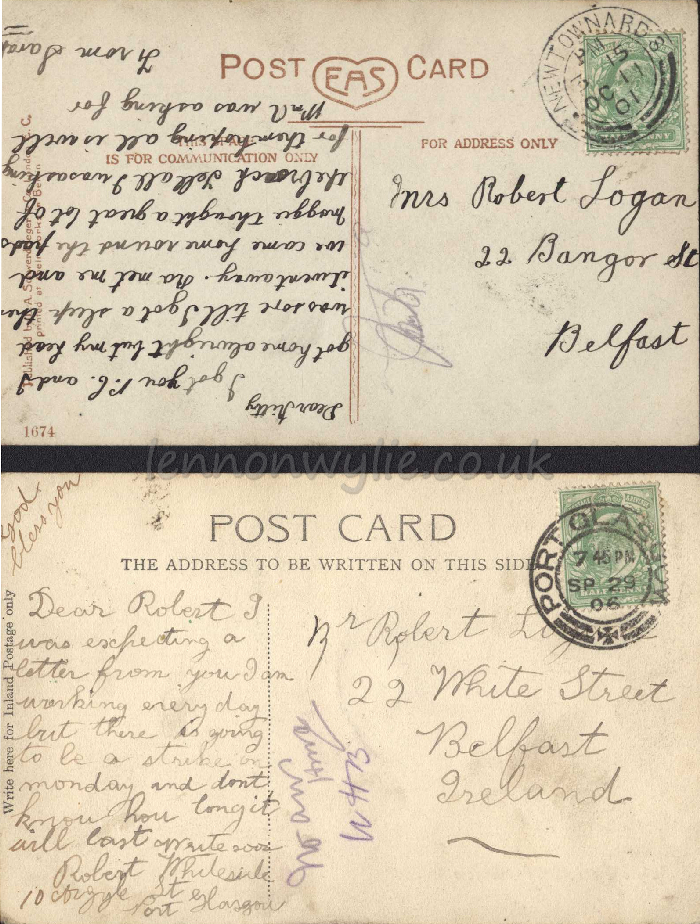 From Sarah
POST EAS CARD
NEWTOWNARDS
PM 15
OC 11
FOR ADDRESS ONLY
IS FOR COMMUNICATION ONLY
Mrs Robert Logan
22 Bangor St
Belfast
Dear Kitty
I got you P.C. and I
got home alwright but my head
was sore till I got a sleep then
it went away. Na met me and
we come home round the
maggie thought a great lot of
the broach tell all I was asking
for them hoping all is well
was asking for
1674
lennonwylie.co.uk
God
bless you
POST CARD
THE ADDRESS TO BE WRITTEN ON THIS SIDE
PORT GLASGOW
7 45 PM
SP 29
06
Write here for Inland Postage only
Dear Robert I
was expecting a
letter from you I am
working every day
but there is going
to be a strike on
monday and dont
know how long it
will last write soon
Robert Whiteside
10 Argyle St
Port Glasgow
Mr Robert Logan
22 White Street
Belfast
Ireland